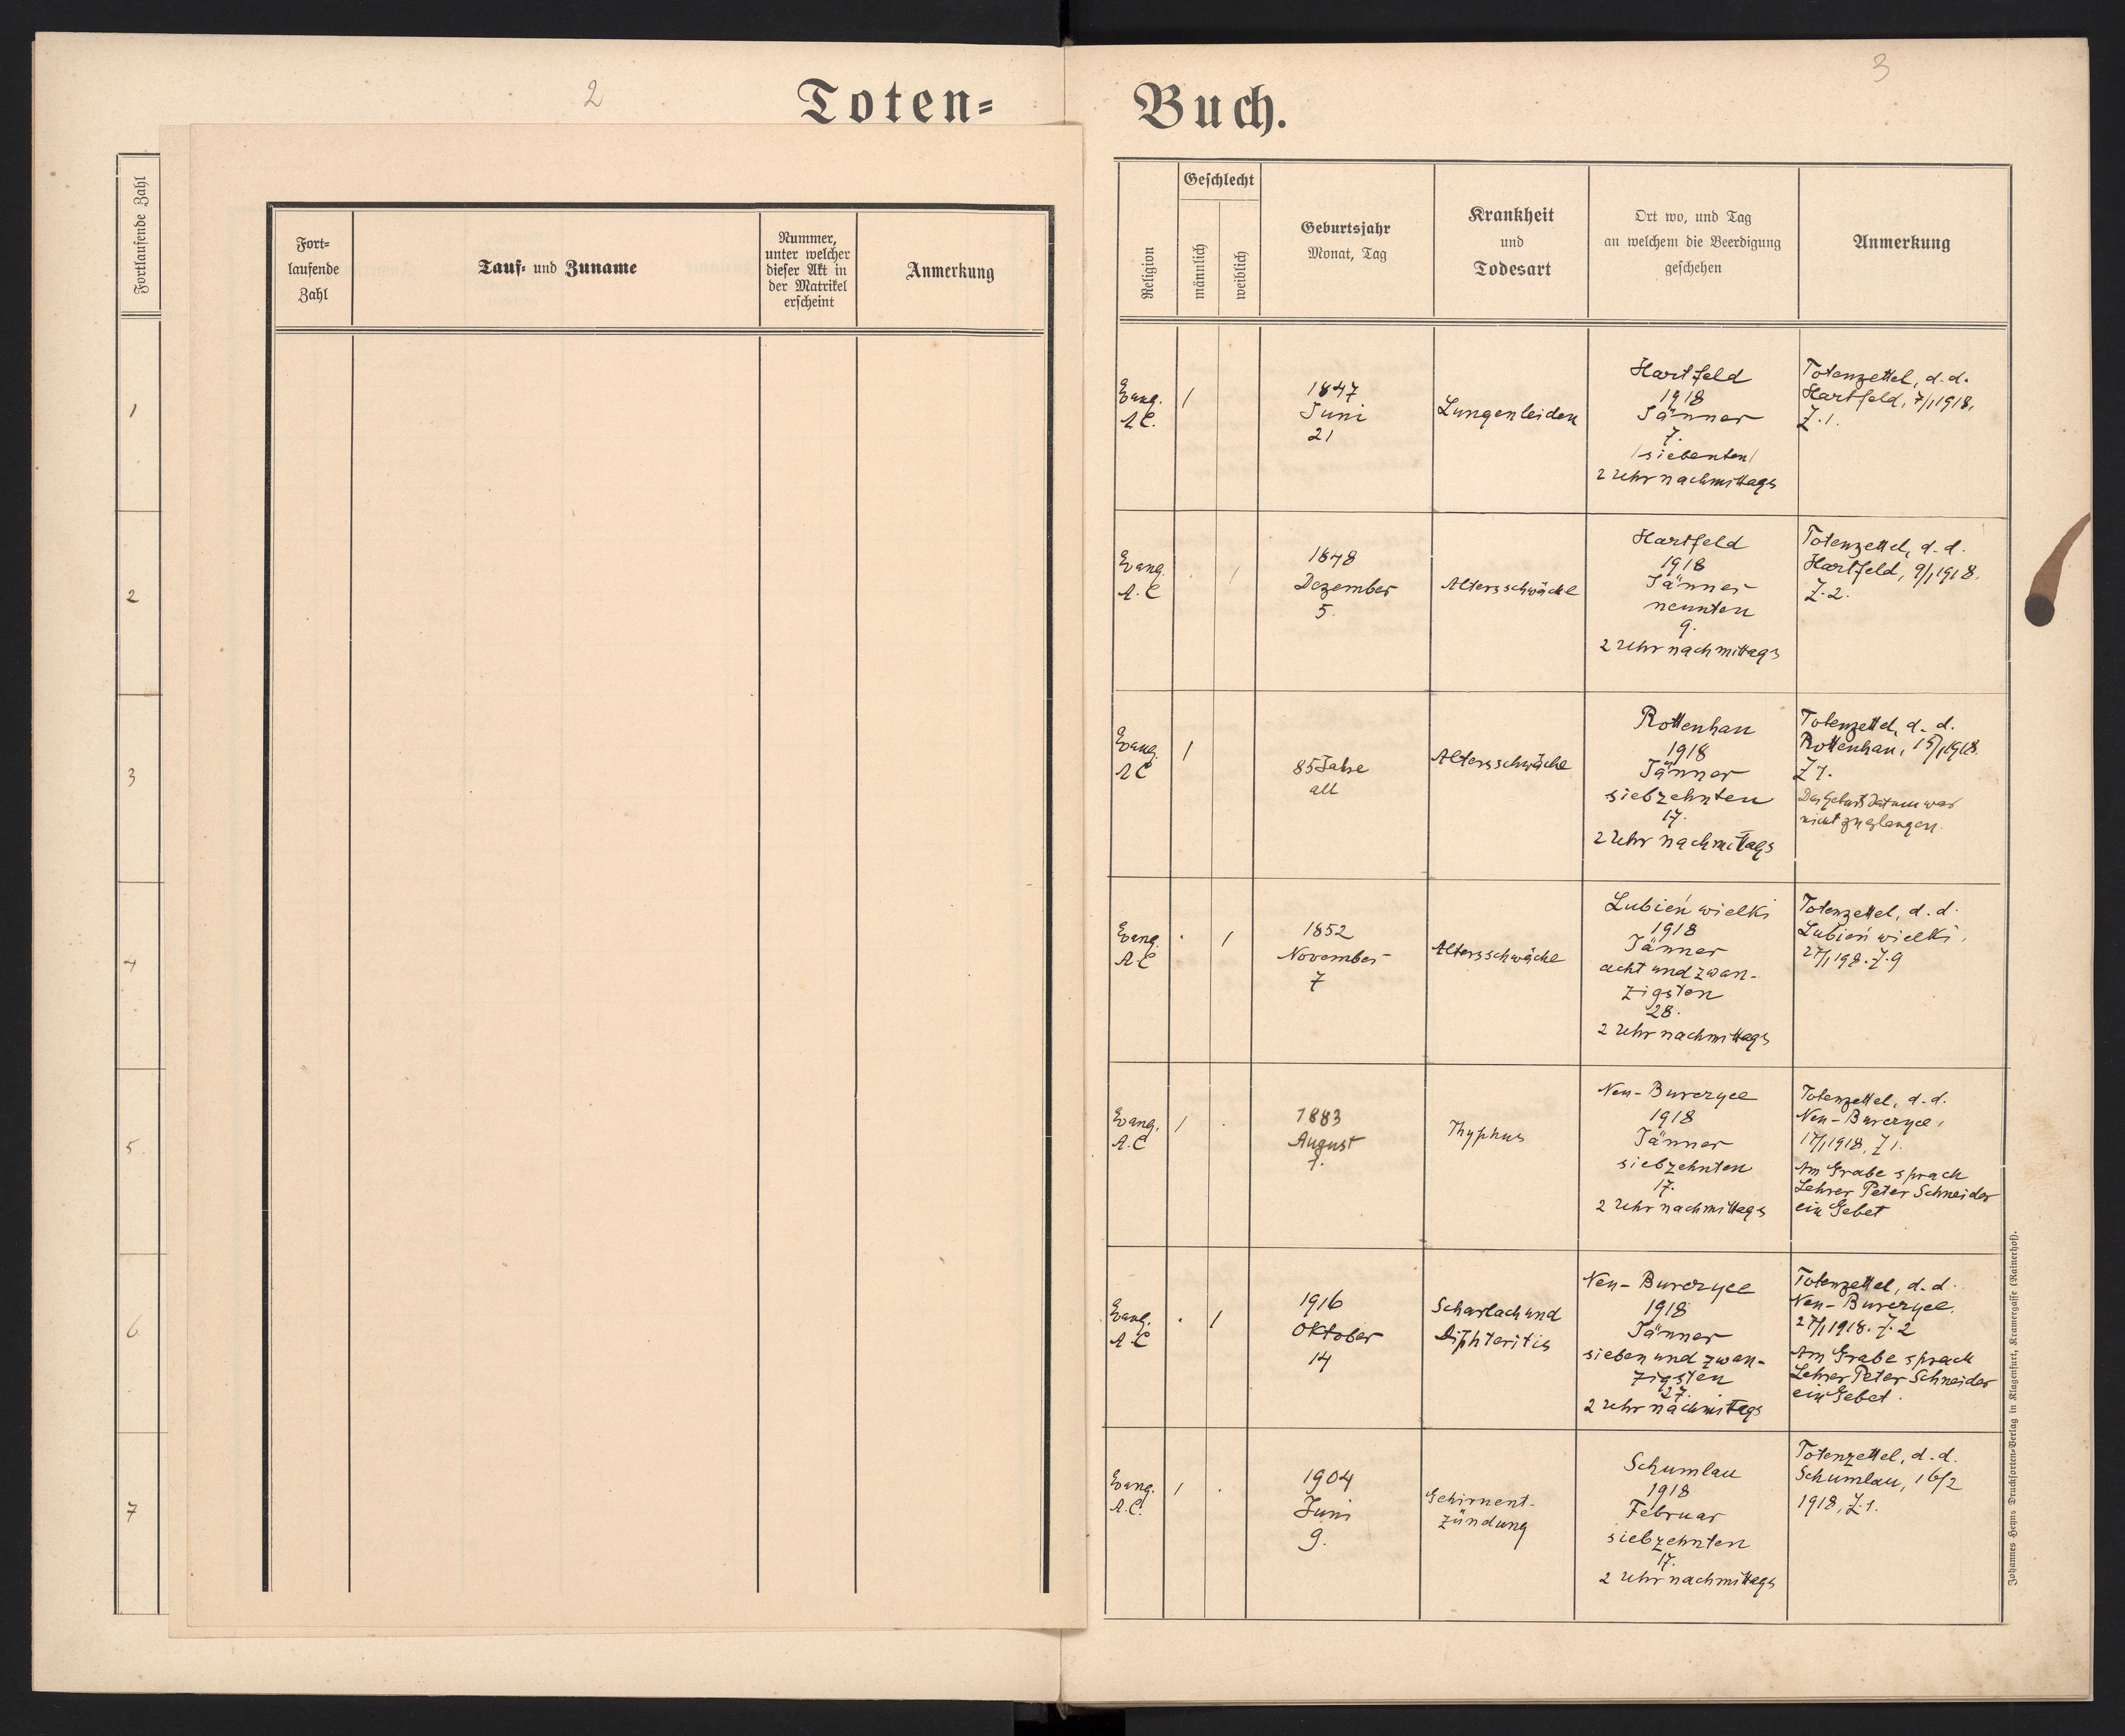 2
3
Toten=
Buch.
Fortlaufende Zahl
1
2
3
4
5
6
7
Fort=
laufende
Zahl
Tauf= und Zuname
Nummer,
unter welcher
dieser Akt in
der Matrikel
erscheint
Anmerkung
Religion
Geschlecht
männlich
weiblich
Geburtsjahr
Monat, Tag
Krankheit
und
Todesart
Ort wo, und Tag
an welchem die Beerdigung
geschehen
Anmerkung
Evang.
A.C.
1
1847
Juni
21
Lungenleiden
Hartfeld
1918
Jänner
7.
/siebenten/
2 Uhr nachmittags
Totenzettel, d.d.
Hartfeld, 7/1 1918,
Z.1.
Evang.
A.C
1
1848
Dezember
5.
Altersschwäche
Hartfeld
1918
Jänner
neunten
9.
2 Uhr nachmittags
Totenzettel, d.d.
Hartfeld, 9/1 1918.
Z.2.
Evang.
A C
1
85 Jahre
alt
Altersschwäche
Rottenhan
1918
Jänner
siebzehnten
17.
2 Uhr nachmittags
Totenzettel, d.d.
Rottenhan, 15/1 1918.
Z 1.
Das Geburtsdatum war
nicht zu erlangen.
Evang.
A.C
1
1852
November
7
Altersschwäche
Lubień wielki
1918
Jänner
acht und zwan-
zigsten
28.
2 Uhr nachmittags
Totenzettel, d.d.
Lubień wielki,
27/1 198. Z.9
Evang.
A.C
1
1883
August
7.
Thyphus
Neu-Burczyce
1918
Jänner
siebzehnten
17.
2 Uhr nachmittags
Totenzettel, d.d.
Neu-Burczyce,
17/1 1918, Z 1.
Am Grabe sprach
Lehrer Peter Schneider
ein Gebet
Evang.
A.C
1
1916
Oktober
14
Scharlach und
Diphteritis
Neu-Burczyce
1918
Jänner
sieben und zwan-
zigsten
27.
2 Uhr nachmittags
Totenzettel, d.d.
Neu-Burczyce.
27/1 1918. Z.2
Am Grabe sprach
Lehrer Peter Schneider
ein Gebet.
Evang.
A.C.
1
1904
Juni
9.
Gehirnent-
zündung
Schumlau
1918
Februar
siebzehnten
17.
2 Uhr nachmittags
Totenzettel, d.d.
Schumlau, 16/2
1918, Z.1.
Johannes Heyns Drucksorten=Verlag in Klagenfurt, Kramergasse (Rainerhof).